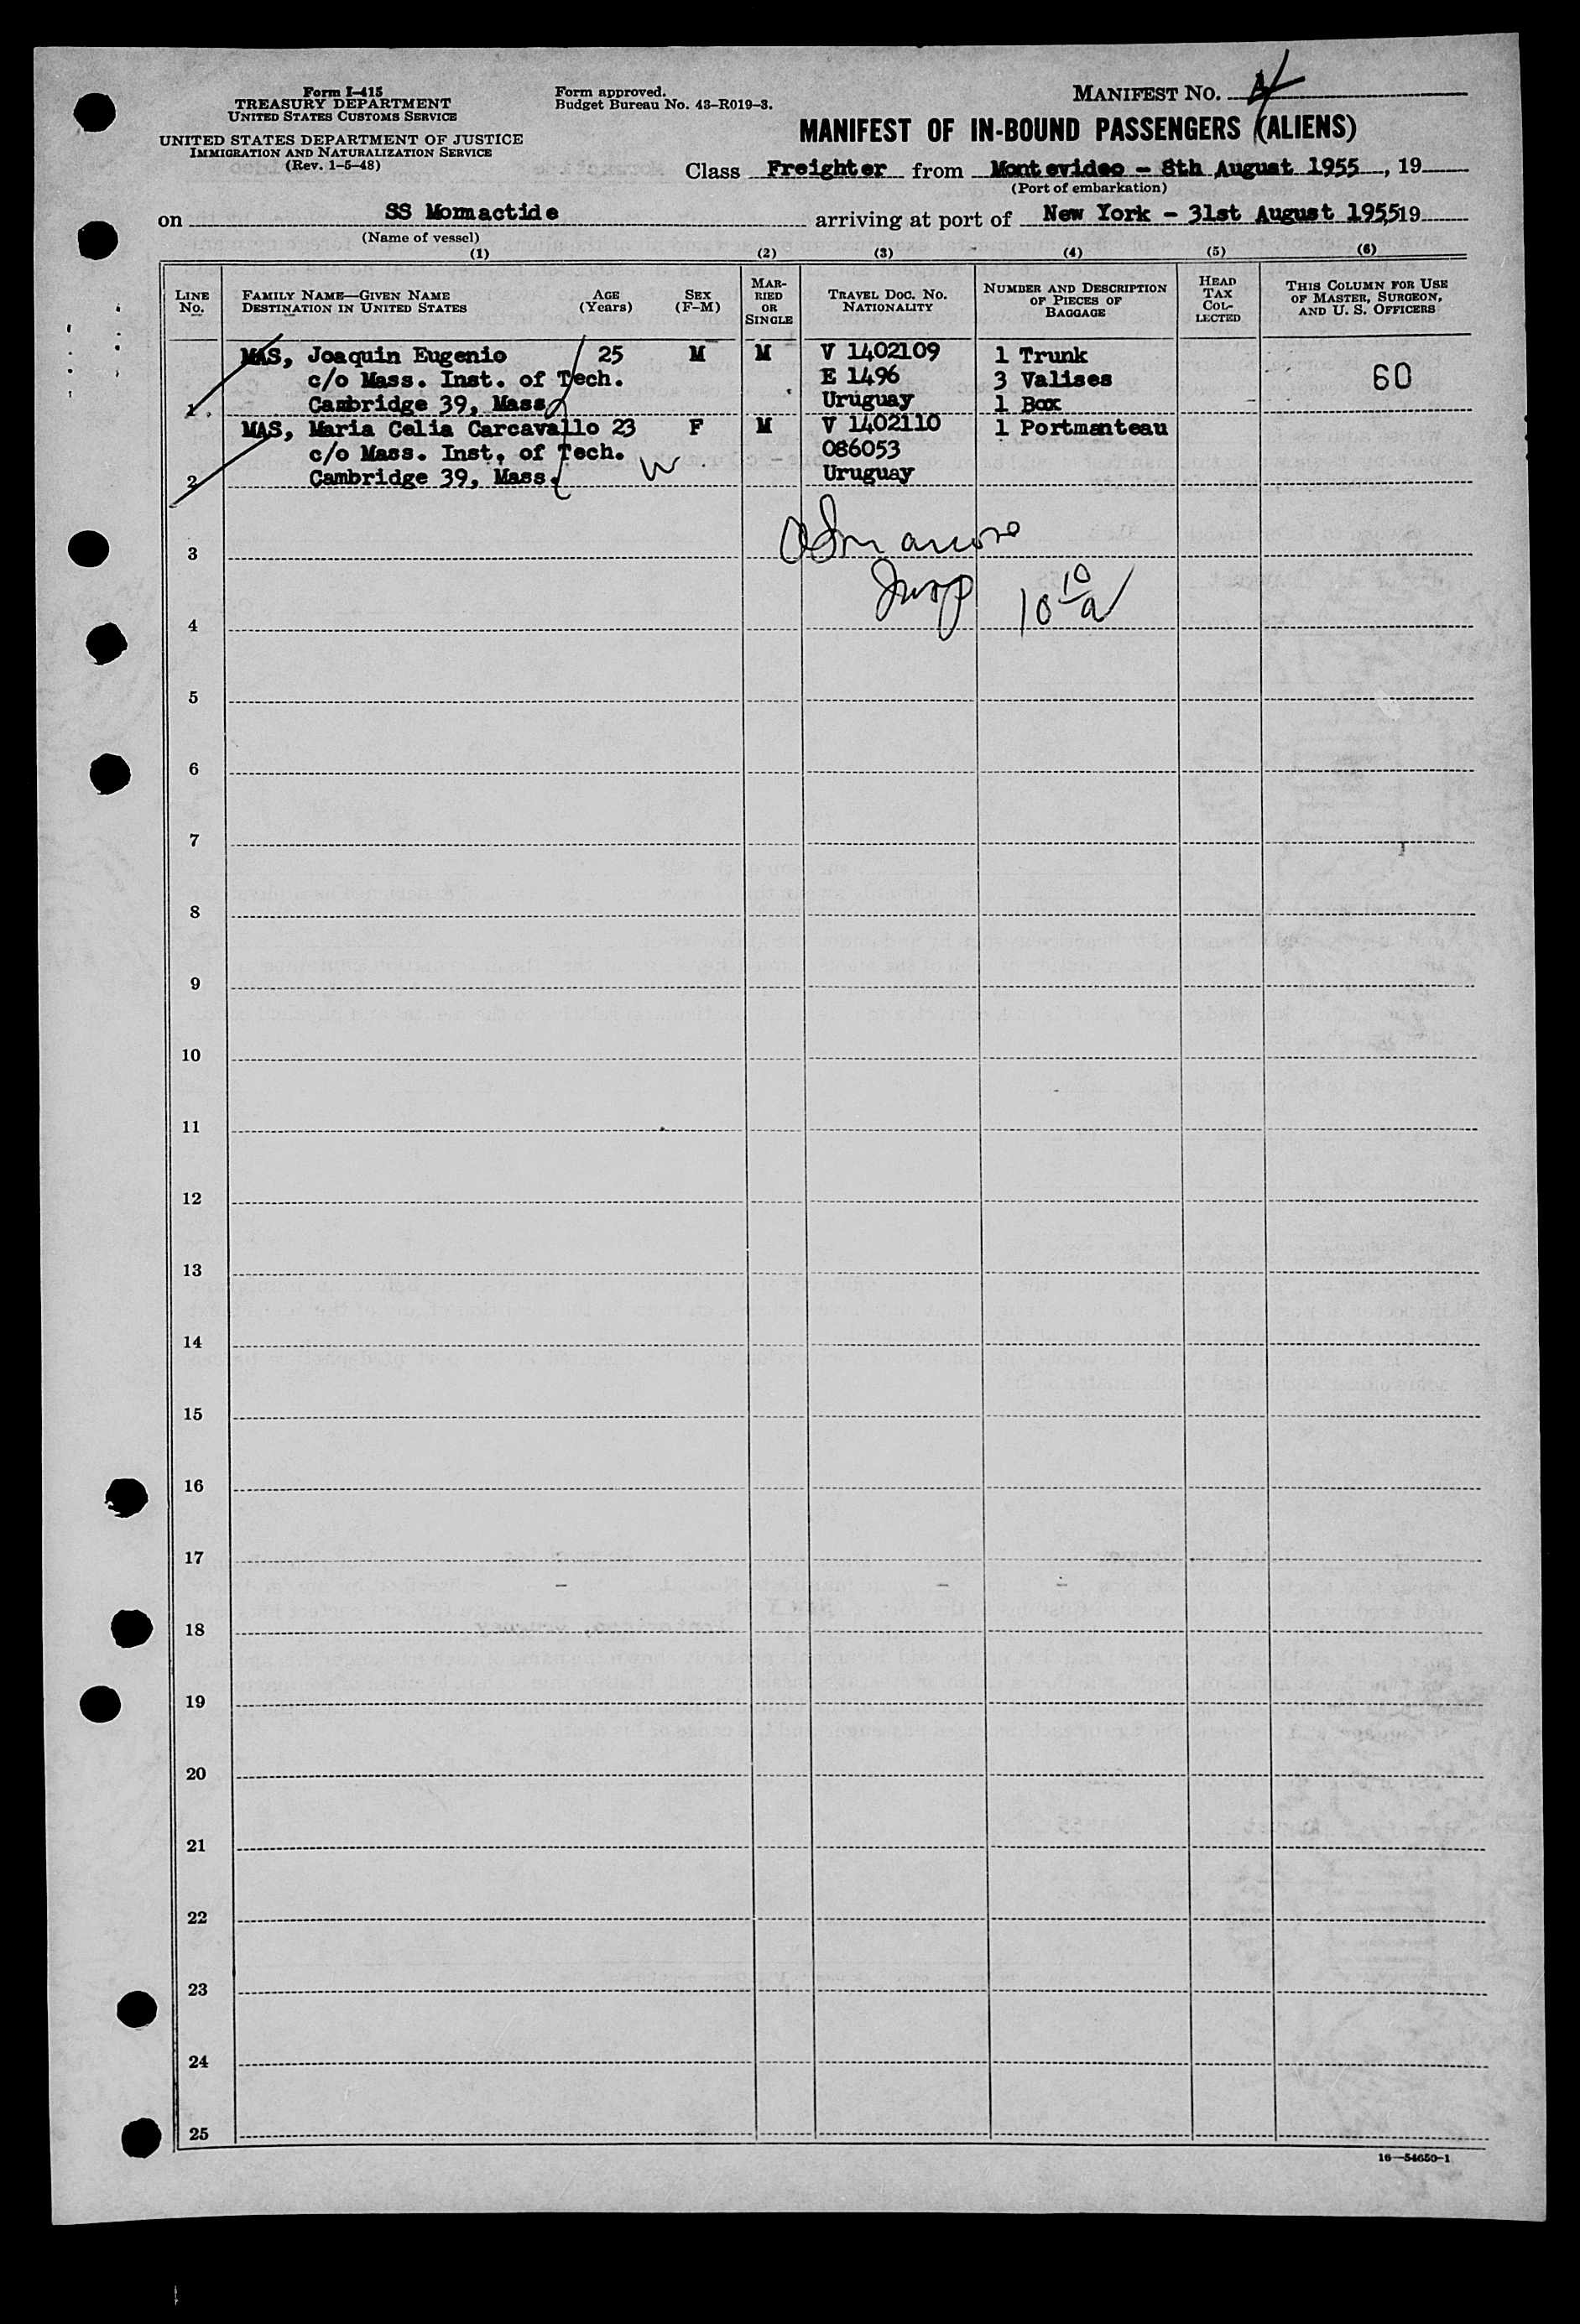 Form I-415
TREASURY DEPARTMENT
UNITED STATES CUSTOMS SERVICE
UNITED STATES DEPARTMENT OF JUSTICE
IMMIGRATION AND NATURALIZATION SERVICE
(Rev. 1-5-48)
Form approved.
Budget Bureau No. 43-R019-3.
MANIFEST NO.
MANIFEST OF IN-BOUND PASSENGERS (ALIENS)
Class Freighter from Montevideo - 8th August 1955, 19
(Port of embarkation)
on SS Mormactide arriving at port of New York - 31st August 1955, 19
(Name of vessel)
(1) (2) (3) (4) (5) (6)
LINE No.
FAMILY NAME—GIVEN NAME
DESTINATION IN UNITED STATES
AGE (Years)
SEX (F-M)
MARRIED OR SINGLE
TRAVEL DOC. NO.
NATIONALITY
NUMBER AND DESCRIPTION OF PIECES OF BAGGAGE
HEAD TAX COLLECTED
THIS COLUMN FOR USE OF MASTER, SURGEON, AND U. S. OFFICERS
MAS, Joaquin Eugenio 25 M M V 1402109 1 Trunk
c/o Mass. Inst. of Tech. E 1496 3 Valises 60
1 Cambridge 39, Mass. Uruguay 1 Box
MAS, Maria Celia Carcavallo 23 F M V 1402110 1 Portmanteau
c/o Mass. Inst. of Tech. 086053
2 Cambridge 39, Mass. Uruguay
W
3
Insp 10 10/a
4
5
6
7
8
9
10
11
12
13
14
15
16
17
18
19
20
21
22
23
24
25
16—54650-1